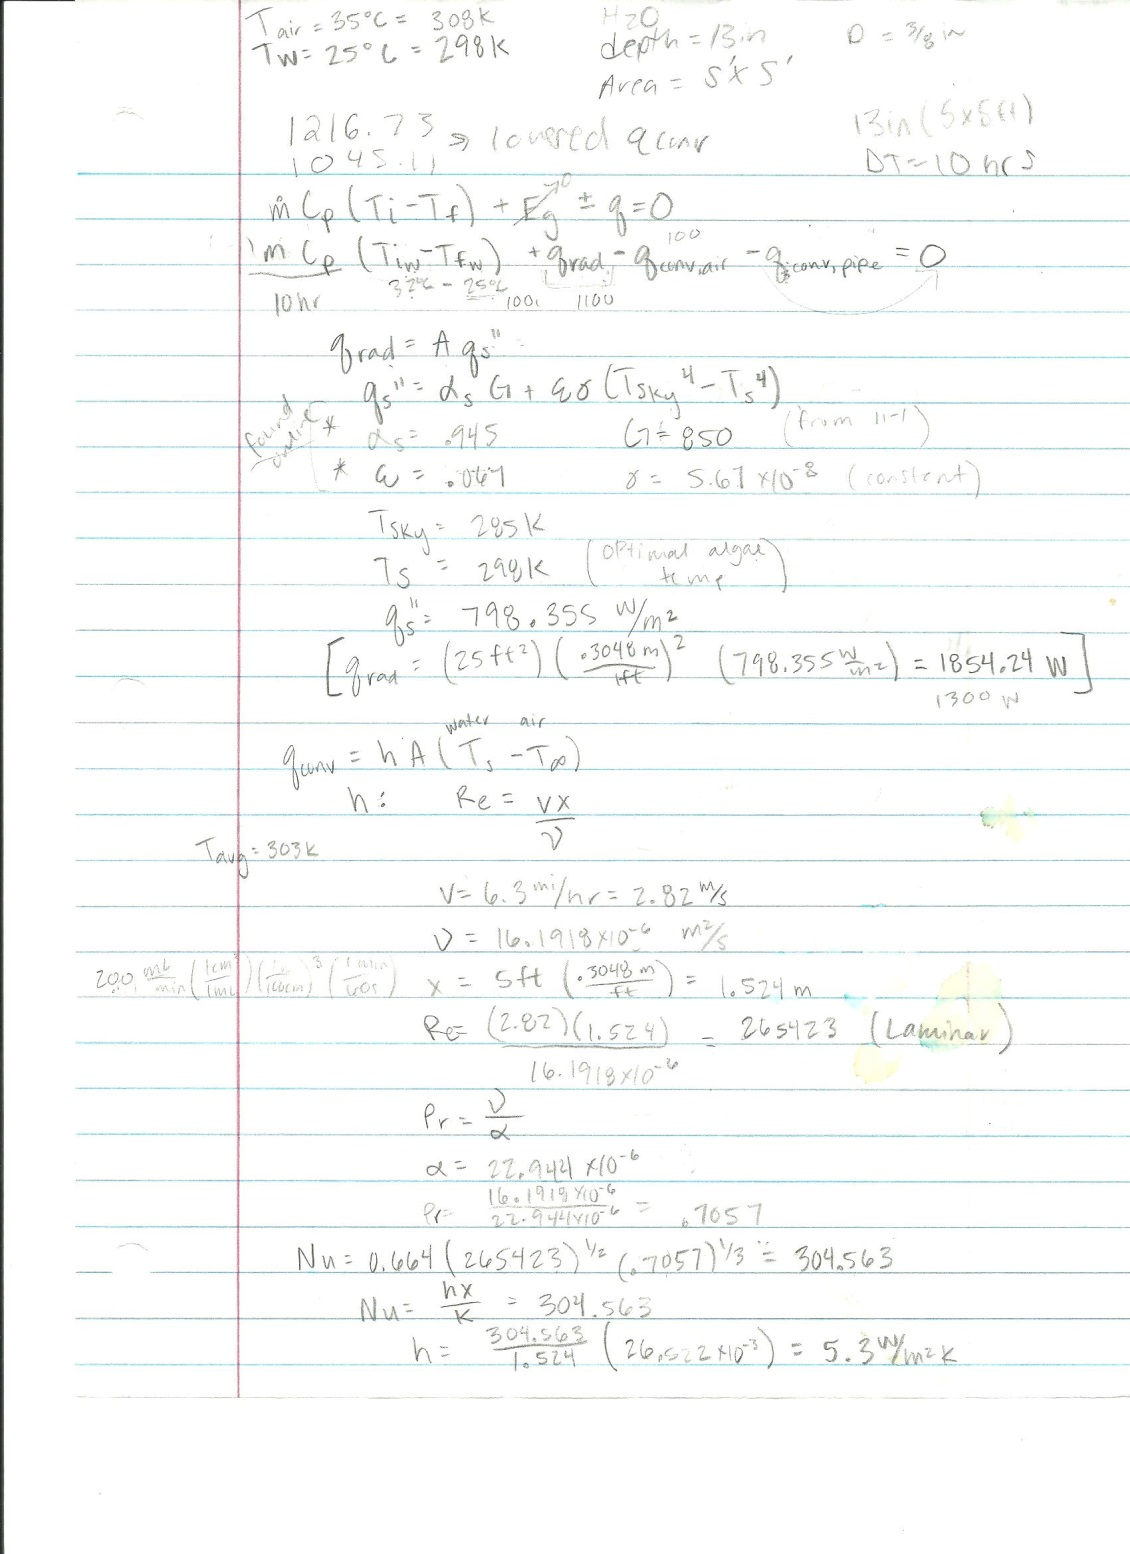 Tair = 35°C = 308K
Tw = 25°C = 298K
H2O
depth = 13in
Area = 5'x5'
D = 3/8 in
1216.73
1045.11 ⇒ lowered qconv
13in (5x5ft)
DT = 10 hrs
ṁ Cp (Ti - Tf) + Eg→0 ± q = 0
m Cp (Tiw - Tfw) + qrad - qconv,air - qconv,pipe = 0
100
10hr
32°C - 25°C
1100
qrad = A qs"
qs" = αs G + εσ (Tsky⁴ - Ts⁴)
found online
* αs = .945
G = 850 (from 11-1)
* ε = .067
σ = 5.67 x10⁻⁸ (constant)
Tsky = 285K
Ts = 298K (optimal algae temp)
qs" = 798.355 W/m²
[qrad = (25ft²) (.3048m/1ft)² (798.355 W/m²) = 1854.24 W]
1300 W
water air
qconv = h A (Ts - T∞)
h: Re = vx/ν
Tavg = 303K
v = 6.3 mi/hr = 2.82 m/s
ν = 16.1918x10⁻⁶ m²/s
200 mL/min (1cm³/1mL) (1m/100cm)³ (1min/60s)
x = 5ft (.3048 m/ft) = 1.524 m
Re = (2.82)(1.524)/16.1918x10⁻⁶ = 265423 (Laminar)
Pr = ν/α
α = 22.944 x10⁻⁶
Pr = 16.1918x10⁻⁶/22.944x10⁻⁶ = .7057
Nu = 0.664 (265423)^1/2 (.7057)^1/3 = 304.563
Nu = hx/k = 304.563
h = 304.563/1.524 (26.522x10⁻³) = 5.3 W/m²K